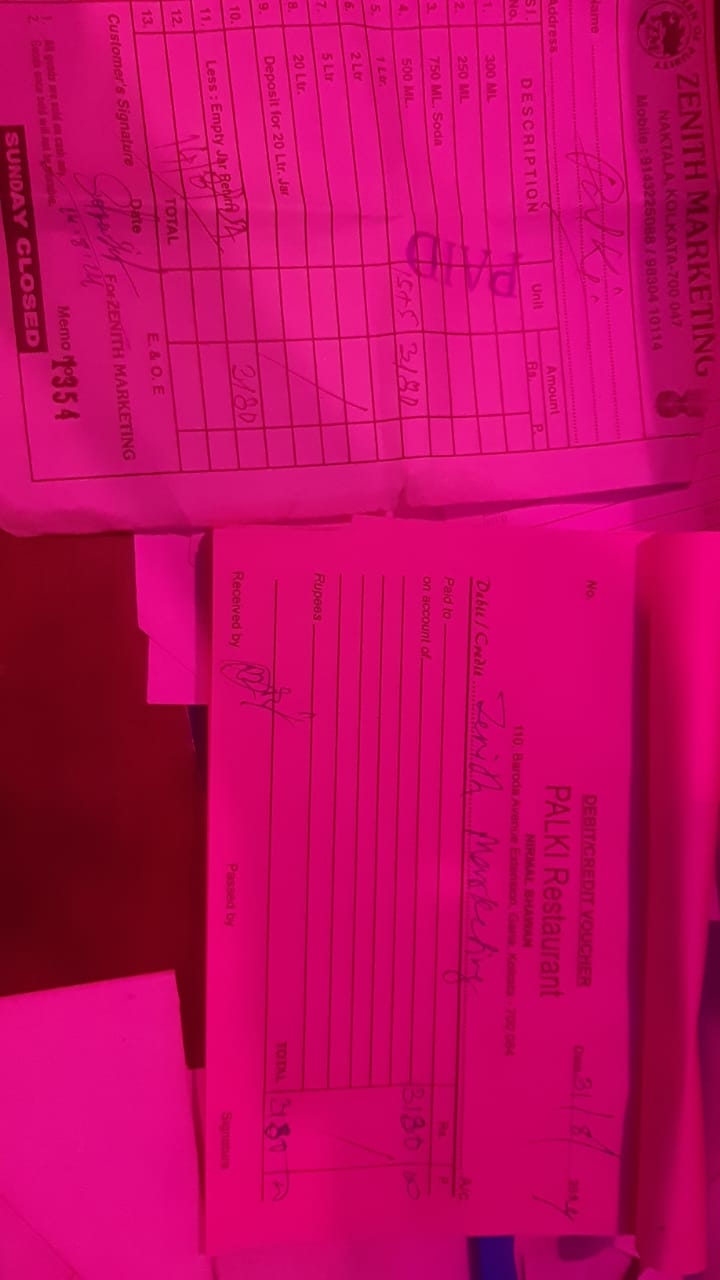 ZENITH MARKETING
NAKTALA, KOLKATA-700 047
Mobile : 9143225088 / 98304 10114
Name
Address
Sl. No. DESCRIPTION Unit Amount
Rs. P.
1. 300 ML
2. 250 ML
3. 750 ML. Soda
4. 500 ML. 15+5 3180
5. 1 Ltr.
6. 2 Ltr
7. 5 Ltr
8. 20 Ltr.
9. Deposit for 20 Ltr. Jar
10. 3180
11. Less : Empty Jar Return
12.
13. TOTAL
PAID
E. & O. E
Customer's Signature Date For ZENITH MARKETING
1. All goods are sold on cash only.
2. Goods once sold will not be
Memo No. 1354
SUNDAY CLOSED
No.
DEBIT/CREDIT VOUCHER
PALKI Restaurant
NIRMAL BHAWAN
110, Baroda Avenue Extension, Garia, Kolkata - 700 084
Date 31/8/
Debit / Credit Zenith Marketing A/c
Paid to Rs. P.
on account of 3180 00
Rupees
TOTAL 3180
Received by Passed by Signature